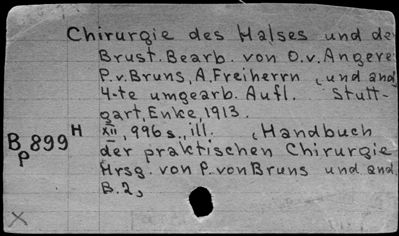 Chirurgie des Halses und der
Brust. Bearb. von O.v. Angerer
P.v. Bruns, A. Freiherrn, und and
4-te umgearb. Aufl. Stutt-
gart, Enke, 1913.
B 899 H
P
XII, 996 s., ill. (Handbuch
der praktischen Chirurgie
Hrsg. von P. von Bruns und and.
B. 2,
X